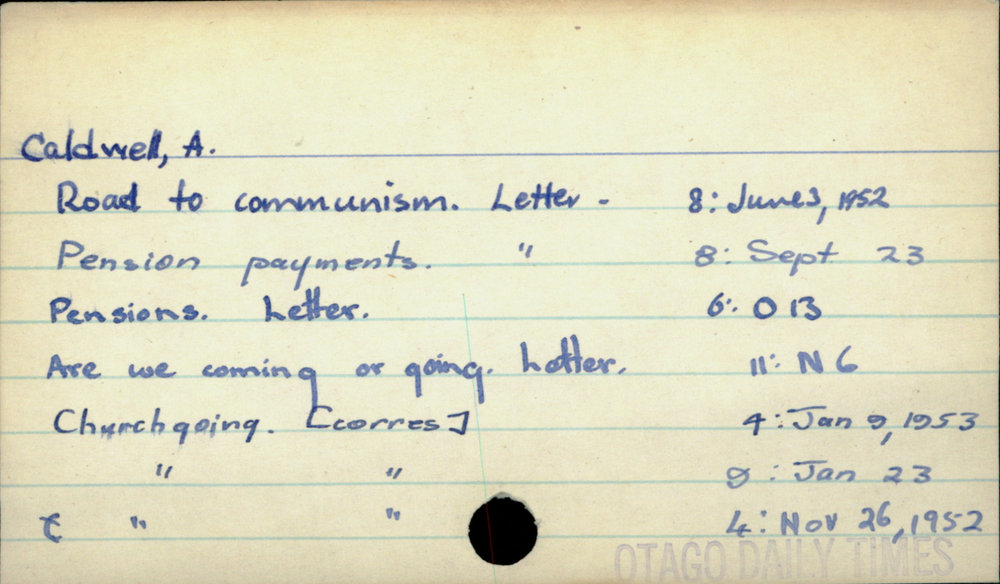 Caldwell, A.
Road to communism. Letter - 8: June 3, 1952
Pension payments. " 8: Sept 23
Pensions. Letter. 6: O 13
Are we coming or going. Letter. 11: N 6
Churchgoing. [corres] 4: Jan 9, 1953
" " 9: Jan 23
" " 4: Nov 26, 1952
OTAGO DAILY TIMES